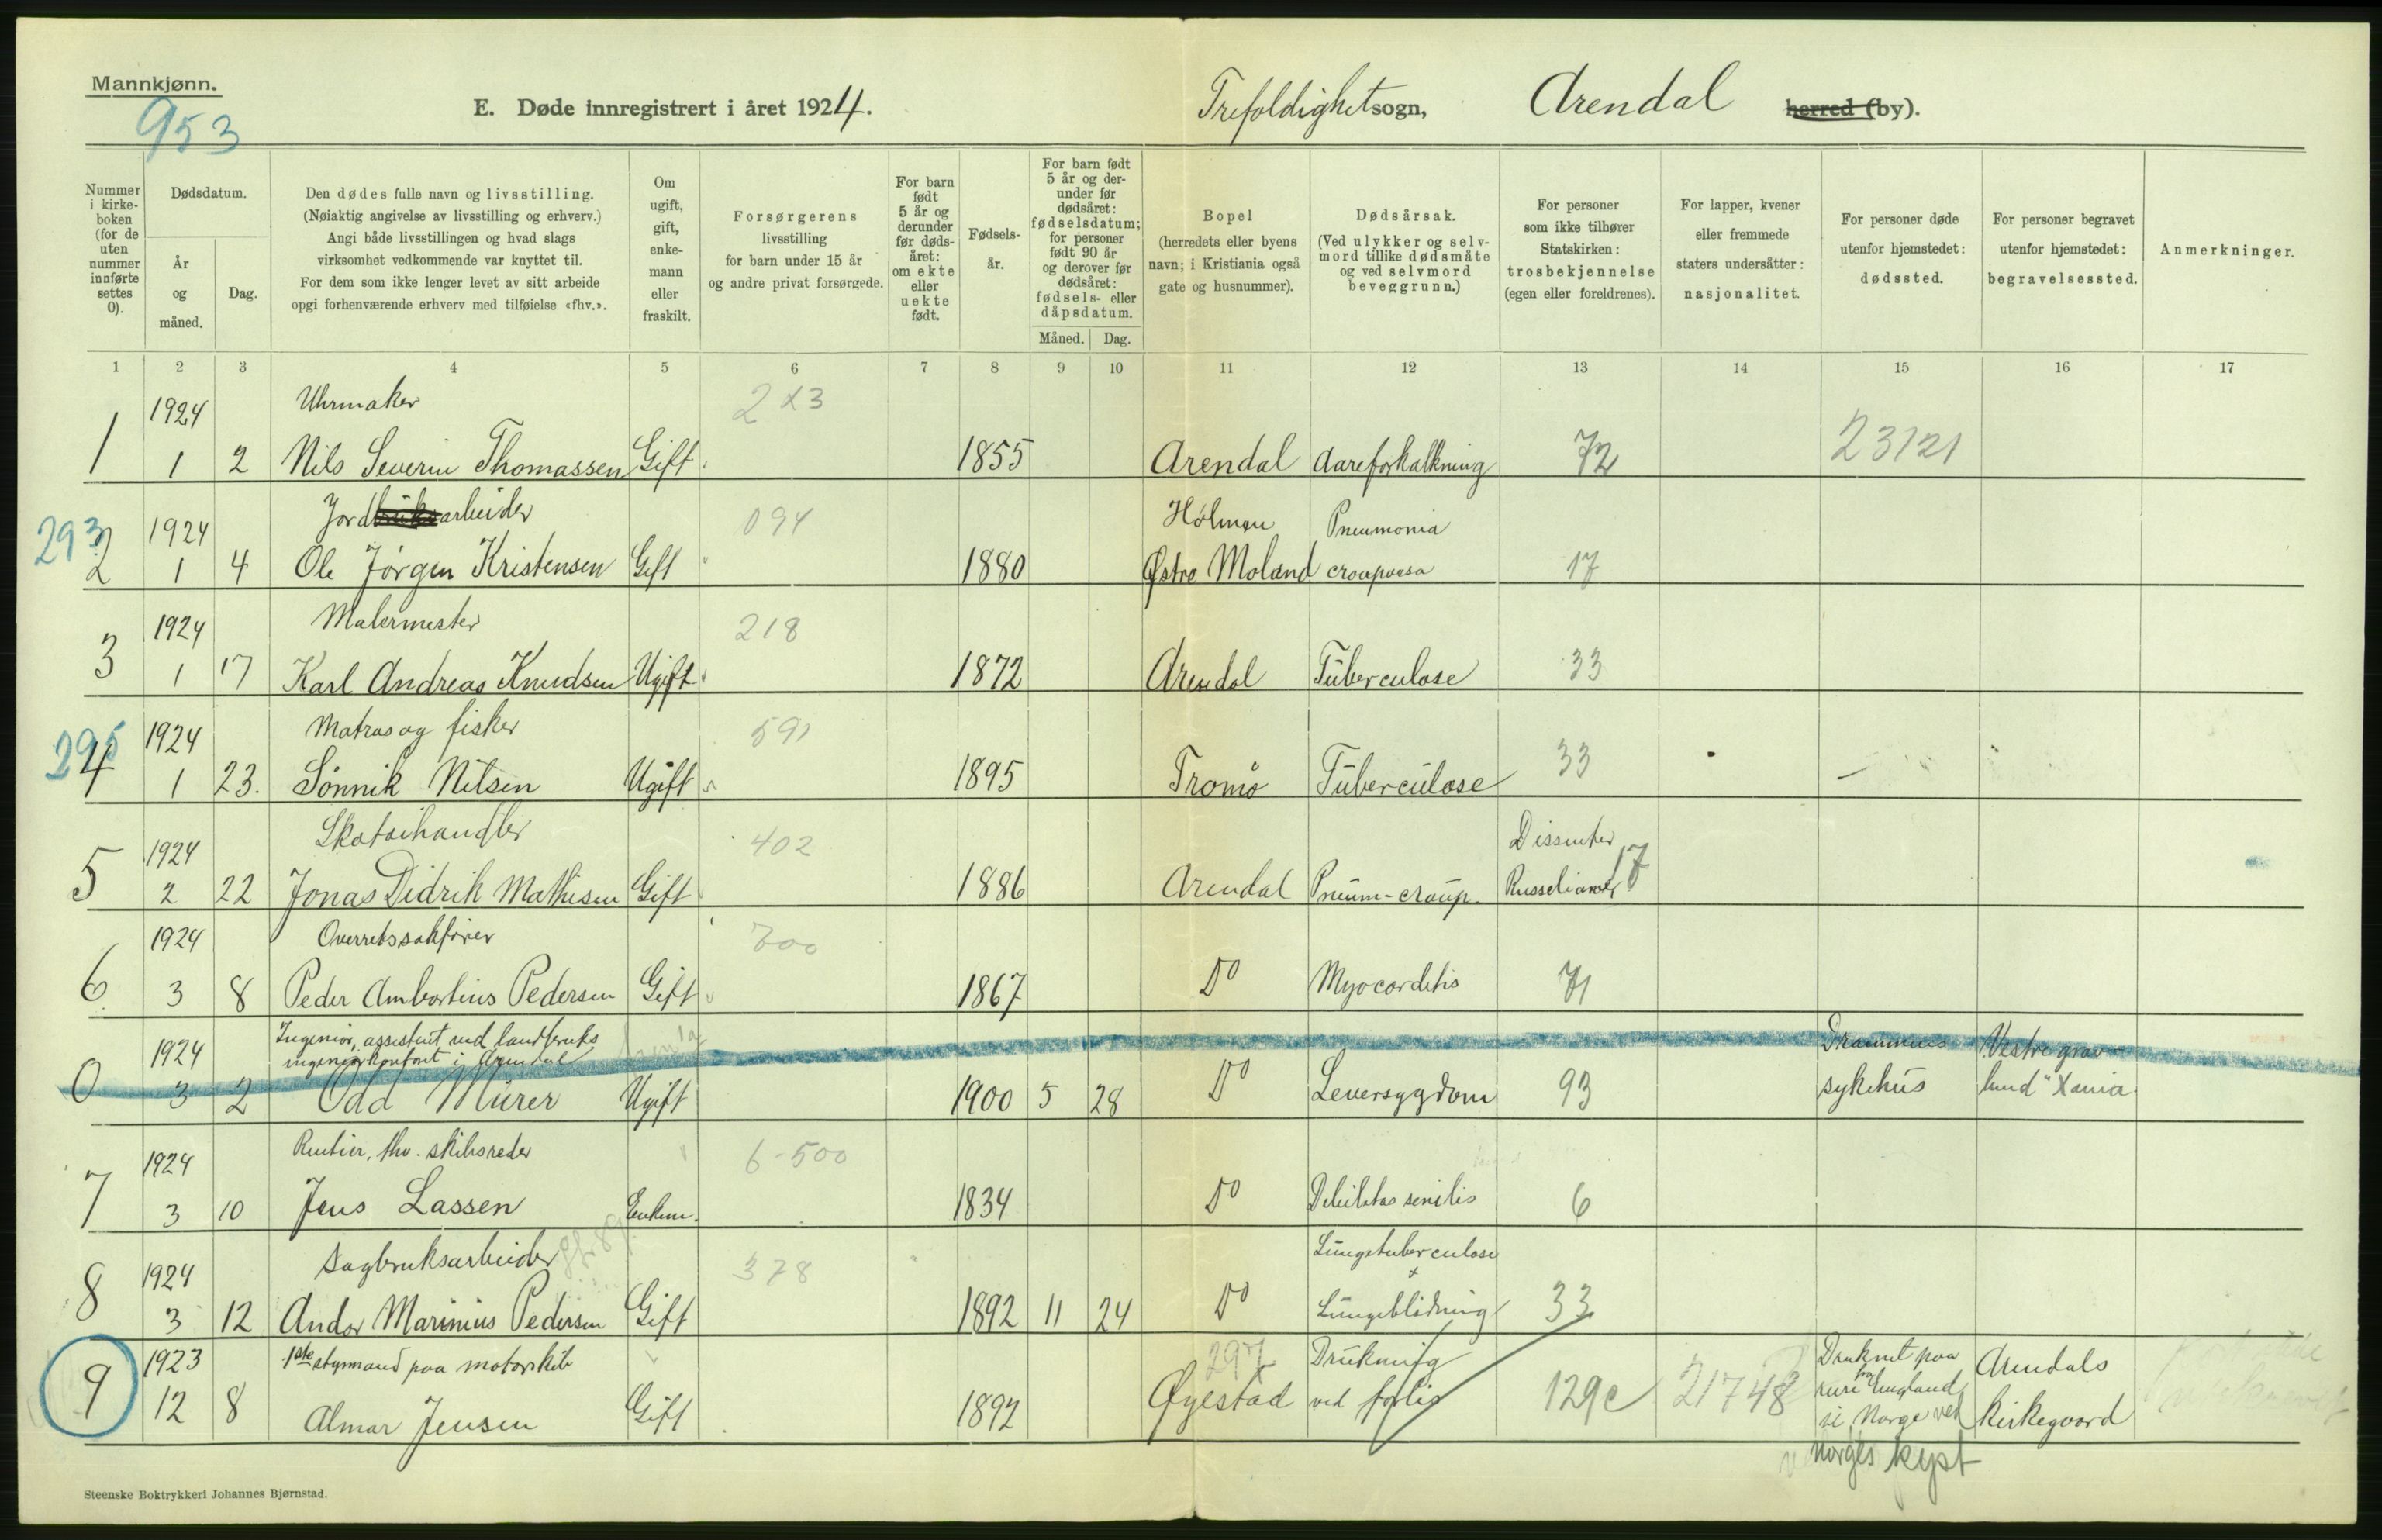 Mannkjønn.
953
E. Døde innregistrert i året 1924.
Trefoldighet sogn, Arendal herred (by).
Nummer i kirke-boken (for de uten nummer innførte settes 0).
Dødsdatum.
År og måned.
Dag.
Den dødes fulle navn og livsstilling.
(Nøiaktig angivelse av livsstilling og erhverv.)
Angi både livsstillingen og hvad slags
virksomhet vedkommende var knyttet til.
For dem som ikke lenger levet av sitt arbeide
opgi forhenværende erhverv med tilføielse «fhv.».
Om ugift, gift, enke-mann eller fraskilt.
Forsørgerens
livsstilling
for barn under 15 år
og andre privat forsørgede.
For barn født 5 år og derunder før døds-året: om ekte eller uekte født.
Fødsels-år.
For barn født 5 år og der-under før dødsåret: fødselsdatum; for personer født 90 år og derover før dødsåret: fødsels- eller dåpsdatum.
Måned. Dag.
Bopel
(herredets eller byens
navn; i Kristiania også
gate og husnummer).
Dødsårsak.
(Ved ulykker og selv-
mord tillike dødsmåte
og ved selvmord
beveggrunn.)
For personer
som ikke tilhører
Statskirken:
trosbekjennelse
(egen eller foreldrenes).
For lapper, kvener
eller fremmede
staters undersåtter:
nasjonalitet.
For personer døde
utenfor hjemstedet:
dødssted.
For personer begravet
utenfor hjemstedet:
begravelsessted.
Anmerkninger.
1 2 3 4 5 6 7 8 9 10 11 12 13 14 15 16 17
1924 Uhrmaker 223
1 1 2 Nils Severin Thomassen Gift 1855 Arendal Aareforkalkning 72 23121
293 1924 Jordbruksarbeider 094 Holmen Pneumonia
2 1 4 Ole Jörgen Kristensen Gift 1880 Østre Moland crouposa 17
1924 Malermester 218
3 1 17 Karl Andreas Knudsen Ugift 1872 Arendal Tuberculose 33
295 1924 Matros og fisker 591
4 1 23. Sönnik Nilsen Ugift 1895 Tromö Tuberculose 33
1924 Skotöihandler 402 Dissenter
5 2 22 Jonas Didrik Mathisen Gift 1886 Arendal Pneum-croup. Russelianer 17
1924 Overretssakförer 700
6 3 8 Peder Ambortius Pedersen Gift 1867 Do Myocarditis 71
1924 Ingeniör, assistent ved landbruks Drammens Vestre grav
ingeniörkontoret i Arendal
0 3 2 Odd Mürer Ugift 1900 5 28 Do Leversygdom 93 sykehus lund" Xania.
1924 Rentier, fhv. skibsreder 6-500
7 3 10 Jens Lassen Enkem. 1834 Do Debilitas senilis 6
1924 Sagbruksarbeider 378 Lungetuberculose
8 3 12 Andor Marinius Pedersen Gift 1892 11 24 Do + Lungeblödning 33
1923 1ste styrmand paa motorskib 297 Drukning Druknet paa Arendals
9 12 8 Almar Jensen Gift 1892 Øyestad ved forlis 129c 21748 reise fra England kirkegaard
til Norge ved
Norges kyst
Steenske Boktrykkeri Johannes Bjørnstad.